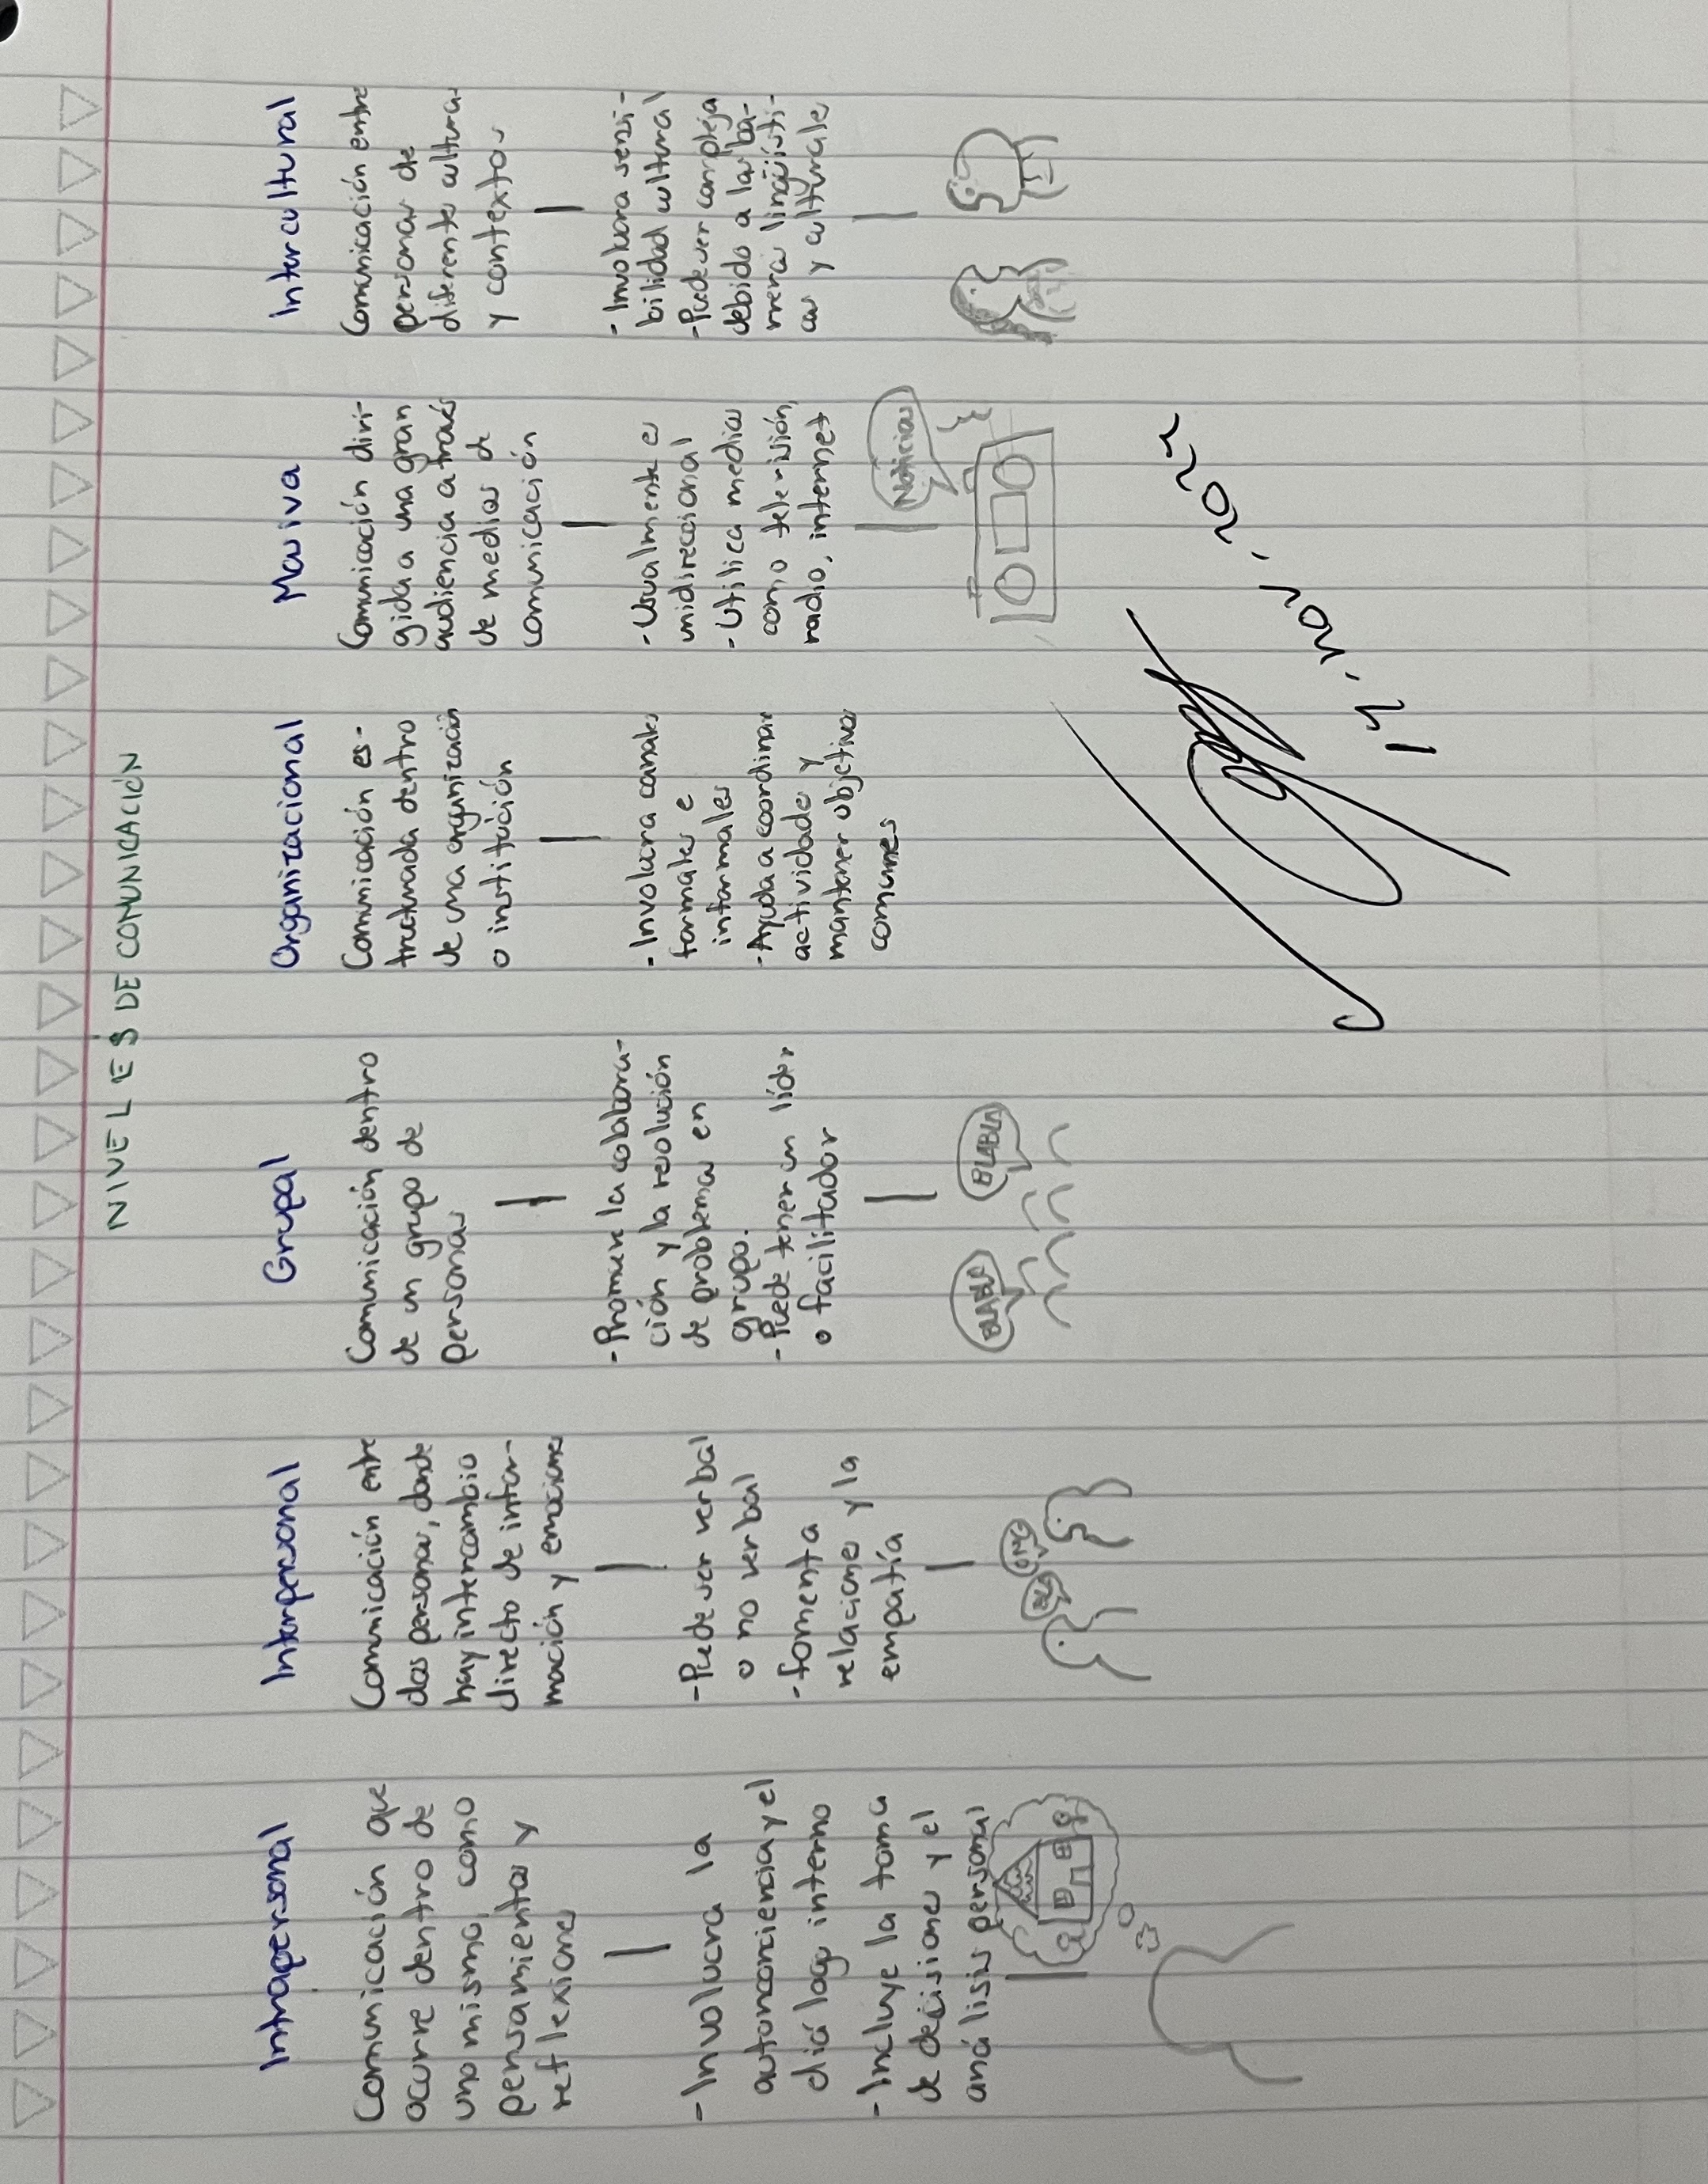 NIVELES DE COMUNICACIÓN
Intrapersonal
Comunicación que
ocurre dentro de
uno mismo, como
pensamientos y
reflexiones
- Involucra la
autoconciencia y el
diálogo interno
- Incluye la toma
de decisiones y el
análisis personal
Interpersonal
Comunicación entre
dos personas, donde
hay intercambio
directo de infor-
mación y emociones
- Puede ser verbal
o no verbal
- fomenta
relaciones y la
empatía
BLA
OMG
Grupal
Comunicación dentro
de un grupo de
personas
- Promueve la colabora-
ción y la resolución
de problemas en
grupo.
- Puede tener un líder
o facilitador
BLABLA
BLABLA
Organizacional
Comunicación es-
tructurada dentro
de una organización
o institución
- Involucra canales
formales e
informales
- Ayuda a coordinar
actividades y
mantener objetivos
comunes
Masiva
Comunicación diri-
gida a una gran
audiencia a través
de medios de
comunicación
- Usualmente es
unidireccional
- Utilica medios
como televisión,
radio, internet
Noticias
Intercultural
Comunicación entre
personas de
diferente culturas
y contextos
- Involucra sensi-
bilidad cultural
- Puede ser compleja
debido a las ba-
rreras lingüísti-
cas y culturales